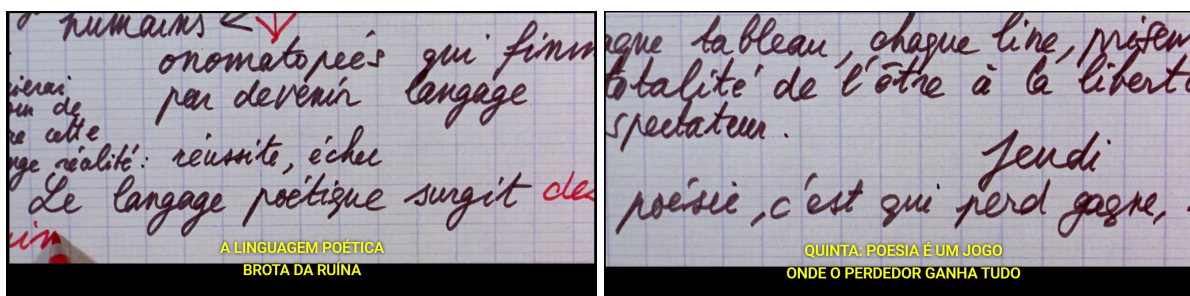 humains
onomatopées qui finin
par devenir langage
oin de
cette
réalité: réussite, échec
Le langage poétique surgit des
A LINGUAGEM POÉTICA
BROTA DA RUÍNA
tableau, chaque line, présen
totalité de l'être à la liberté
spectateur.
Jeudi
poésie, c'est qui perd gagne,
QUINTA: POESIA É UM JOGO
ONDE O PERDEDOR GANHA TUDO